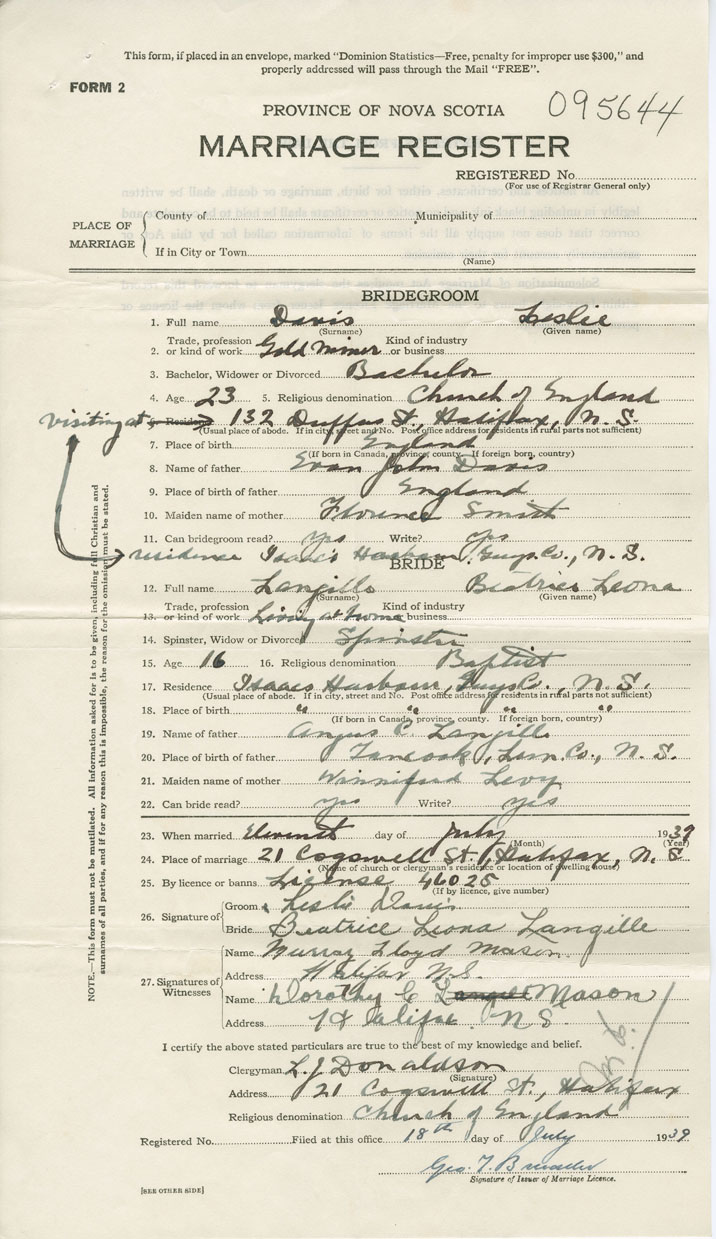 This form, if placed in an envelope, marked "Dominion Statistics—Free, penalty for improper use $300," and
properly addressed will pass through the Mail "FREE".
FORM 2
095644
PROVINCE OF NOVA SCOTIA
MARRIAGE REGISTER
REGISTERED No.
(For use of Registrar General only)
PLACE OF MARRIAGE
County of Municipality of
If in City or Town
(Name)
BRIDEGROOM
1. Full name Davis Leslie
(Surname) (Given name)
Trade, profession Kind of industry
2. or kind of work Gold Miner or business
3. Bachelor, Widower or Divorced Bachelor
4. Age 23 5. Religious denomination Church of England
visiting at 6. Residence 132 Duffus St., Halifax, N. S.
(Usual place of abode. If in city, street and No. Post office address for residents in rural parts not sufficient)
7. Place of birth England
(If born in Canada, province, county. If foreign born, country)
8. Name of father Evan John Davis
9. Place of father England
10. Maiden name of mother Florence Smith
11. Can bridegroom read? yes Write? yes
residence Isaac's Harbour, Guys. Co., N. S.
BRIDE
12. Full name Langille Beatrice Leona
(Surname) (Given name)
Trade, profession Kind of industry
13. or kind of work Living at home business
14. Spinster, Widow or Divorced Spinster
15. Age 16 16. Religious denomination Baptist
17. Residence Isaacs Harbour, Guys Co., N. S.
(Usual place of abode. If in city, street and No. Post office address for residents in rural parts not sufficient)
18. Place of birth " " " "
(If born in Canada, province, county. If foreign born, country)
19. Name of father Angus C. Langille
20. Place of birth of father Tancook, Lun. Co., N. S.
21. Maiden name of mother Winnifred Levy
22. Can bride read? yes Write? yes
23. When married Eleventh day of July 1939
(Month) (Year)
24. Place of marriage 21 Cogswell St., Halifax, N. S
(Name of church or clergyman's residence or location of dwelling house)
25. By licence or banns License 46025
(If by licence, give number)
26. Signature of
Groom Leslie Davis
Bride Beatrice Leona Langille
27. Signatures of Witnesses
Name Murray Lloyd Mason
Address Halifax N.S.
Name Dorothy C Mason
Address Halifax N S
I certify the above stated particulars are true to the best of my knowledge and belief.
Clergyman L. J. Donaldson
(Signature)
Address 21 Cogswell St., Halifax
Religious denomination Church of England
Registered No. Filed at this office 18th day of July 1939
Geo. T.
Signature of Issuer of Marriage Licence.
[SEE OTHER SIDE]
NOTE.—This form must not be mutilated. All information asked for is to be given, including full Christian and
surnames of all parties, and if for any reason this is impossible, the reason for the omission must be stated.